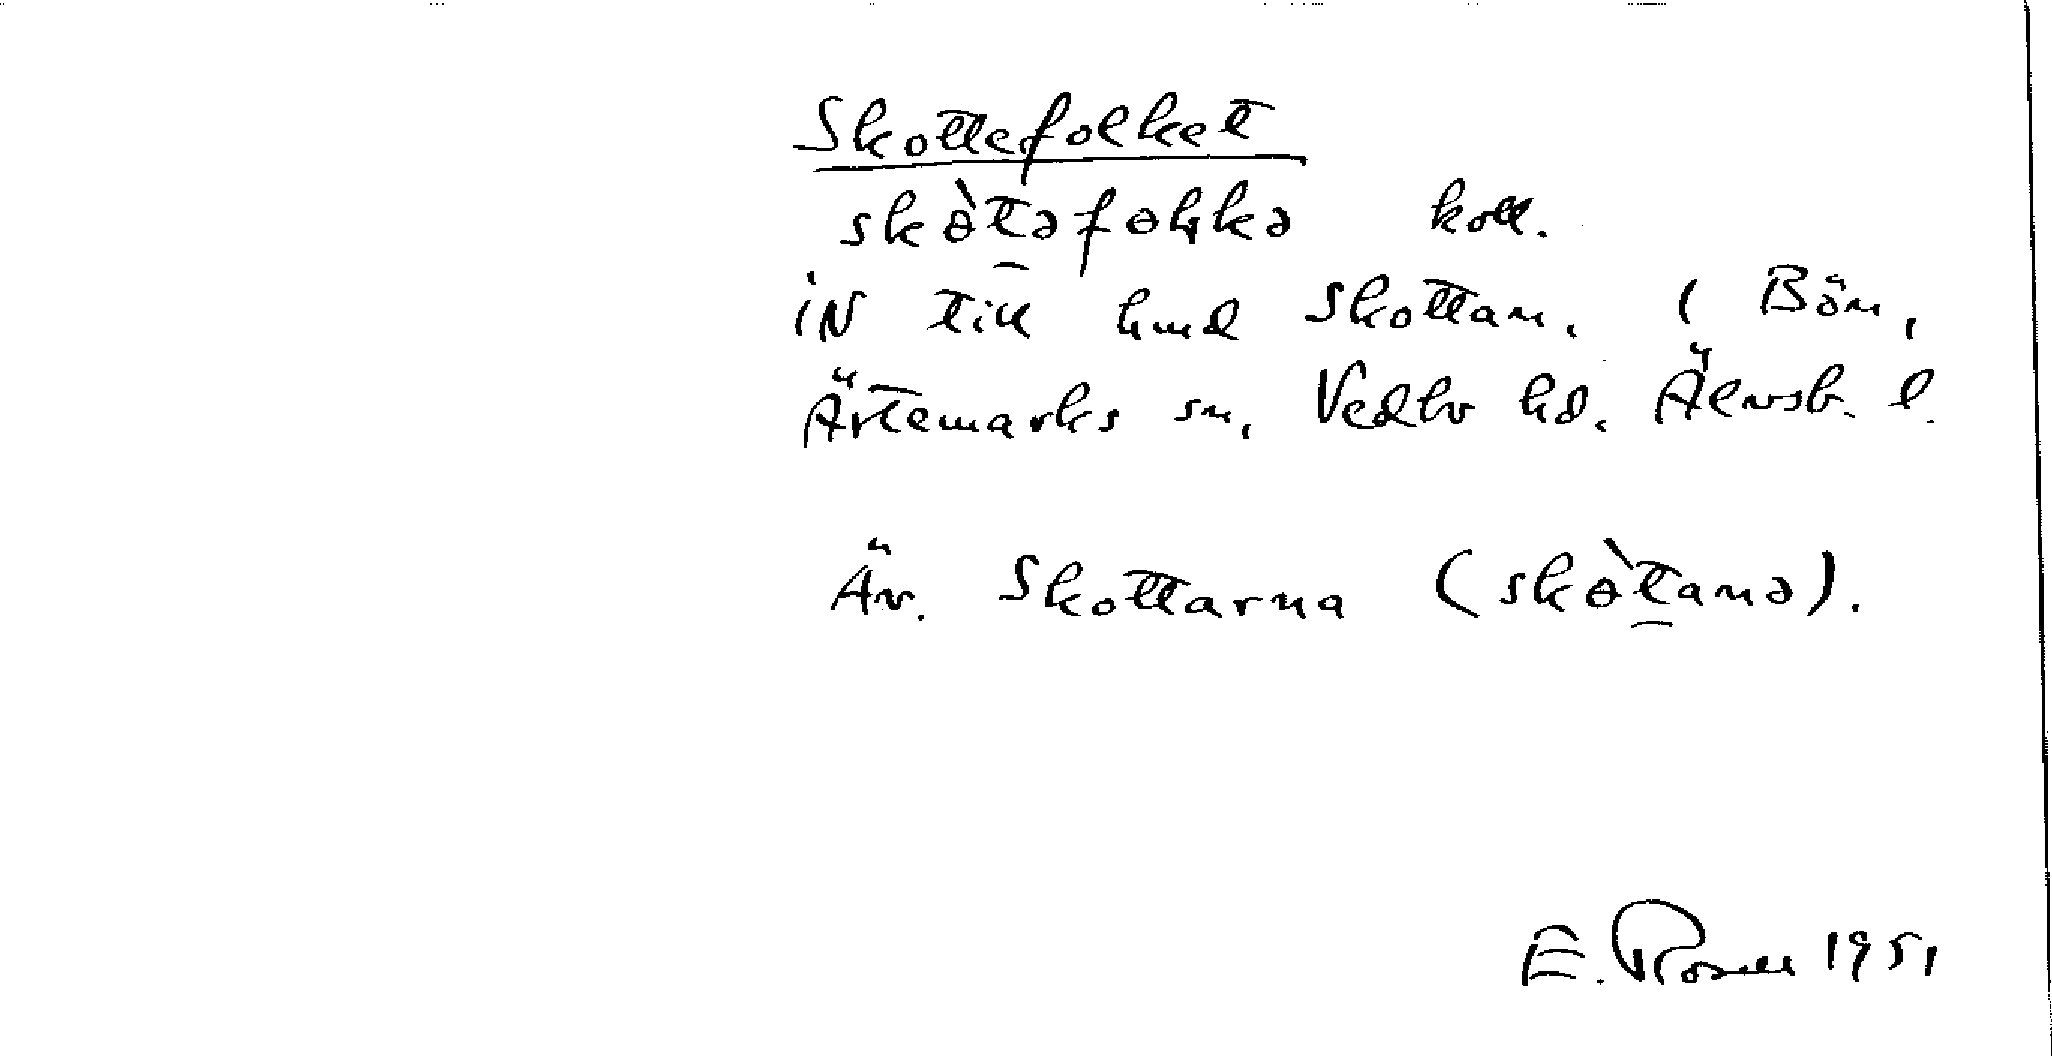 Skottefolket
skɵ̀t̲əfɵɫkə koll.
iN till hmd Skottan. ( Bön,
Ärtemarks sn, Vedbo hd. Älvsb. l.
Äv. Skottarna (skɵ̀t̲anə).
E. Rosell 1951